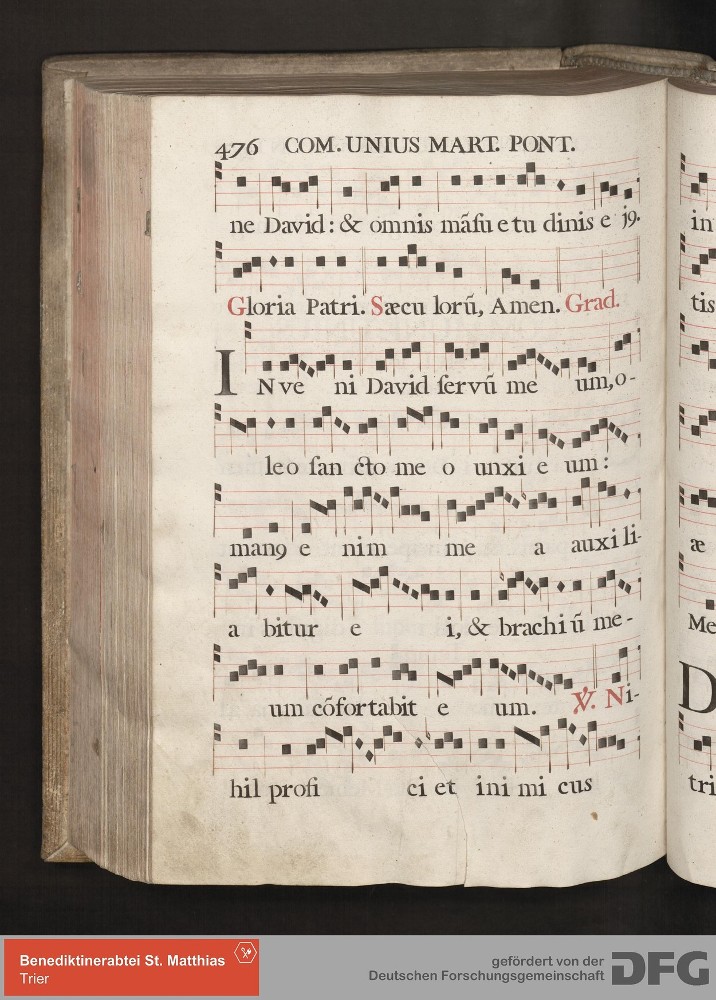 476 COM. UNIUS MART. PONT.
ne David: & omnis mãsu e tu dinis e j9.
Gloria Patri. Sæcu lorũ, Amen. Grad.
IN ve ni David servũ me um, o-
leo san cto me o unxi e um:
man9 e nim me a auxi li-
a bitur e i, & brachi ũ me-
um cõfortabit e um. ℣. Ni-
hil profi ci et ini mi cus
in
tis
æ
Me
D
tri
Benediktinerabtei St. Matthias
Trier
gefördert von der
Deutschen Forschungsgemeinschaft
DFG